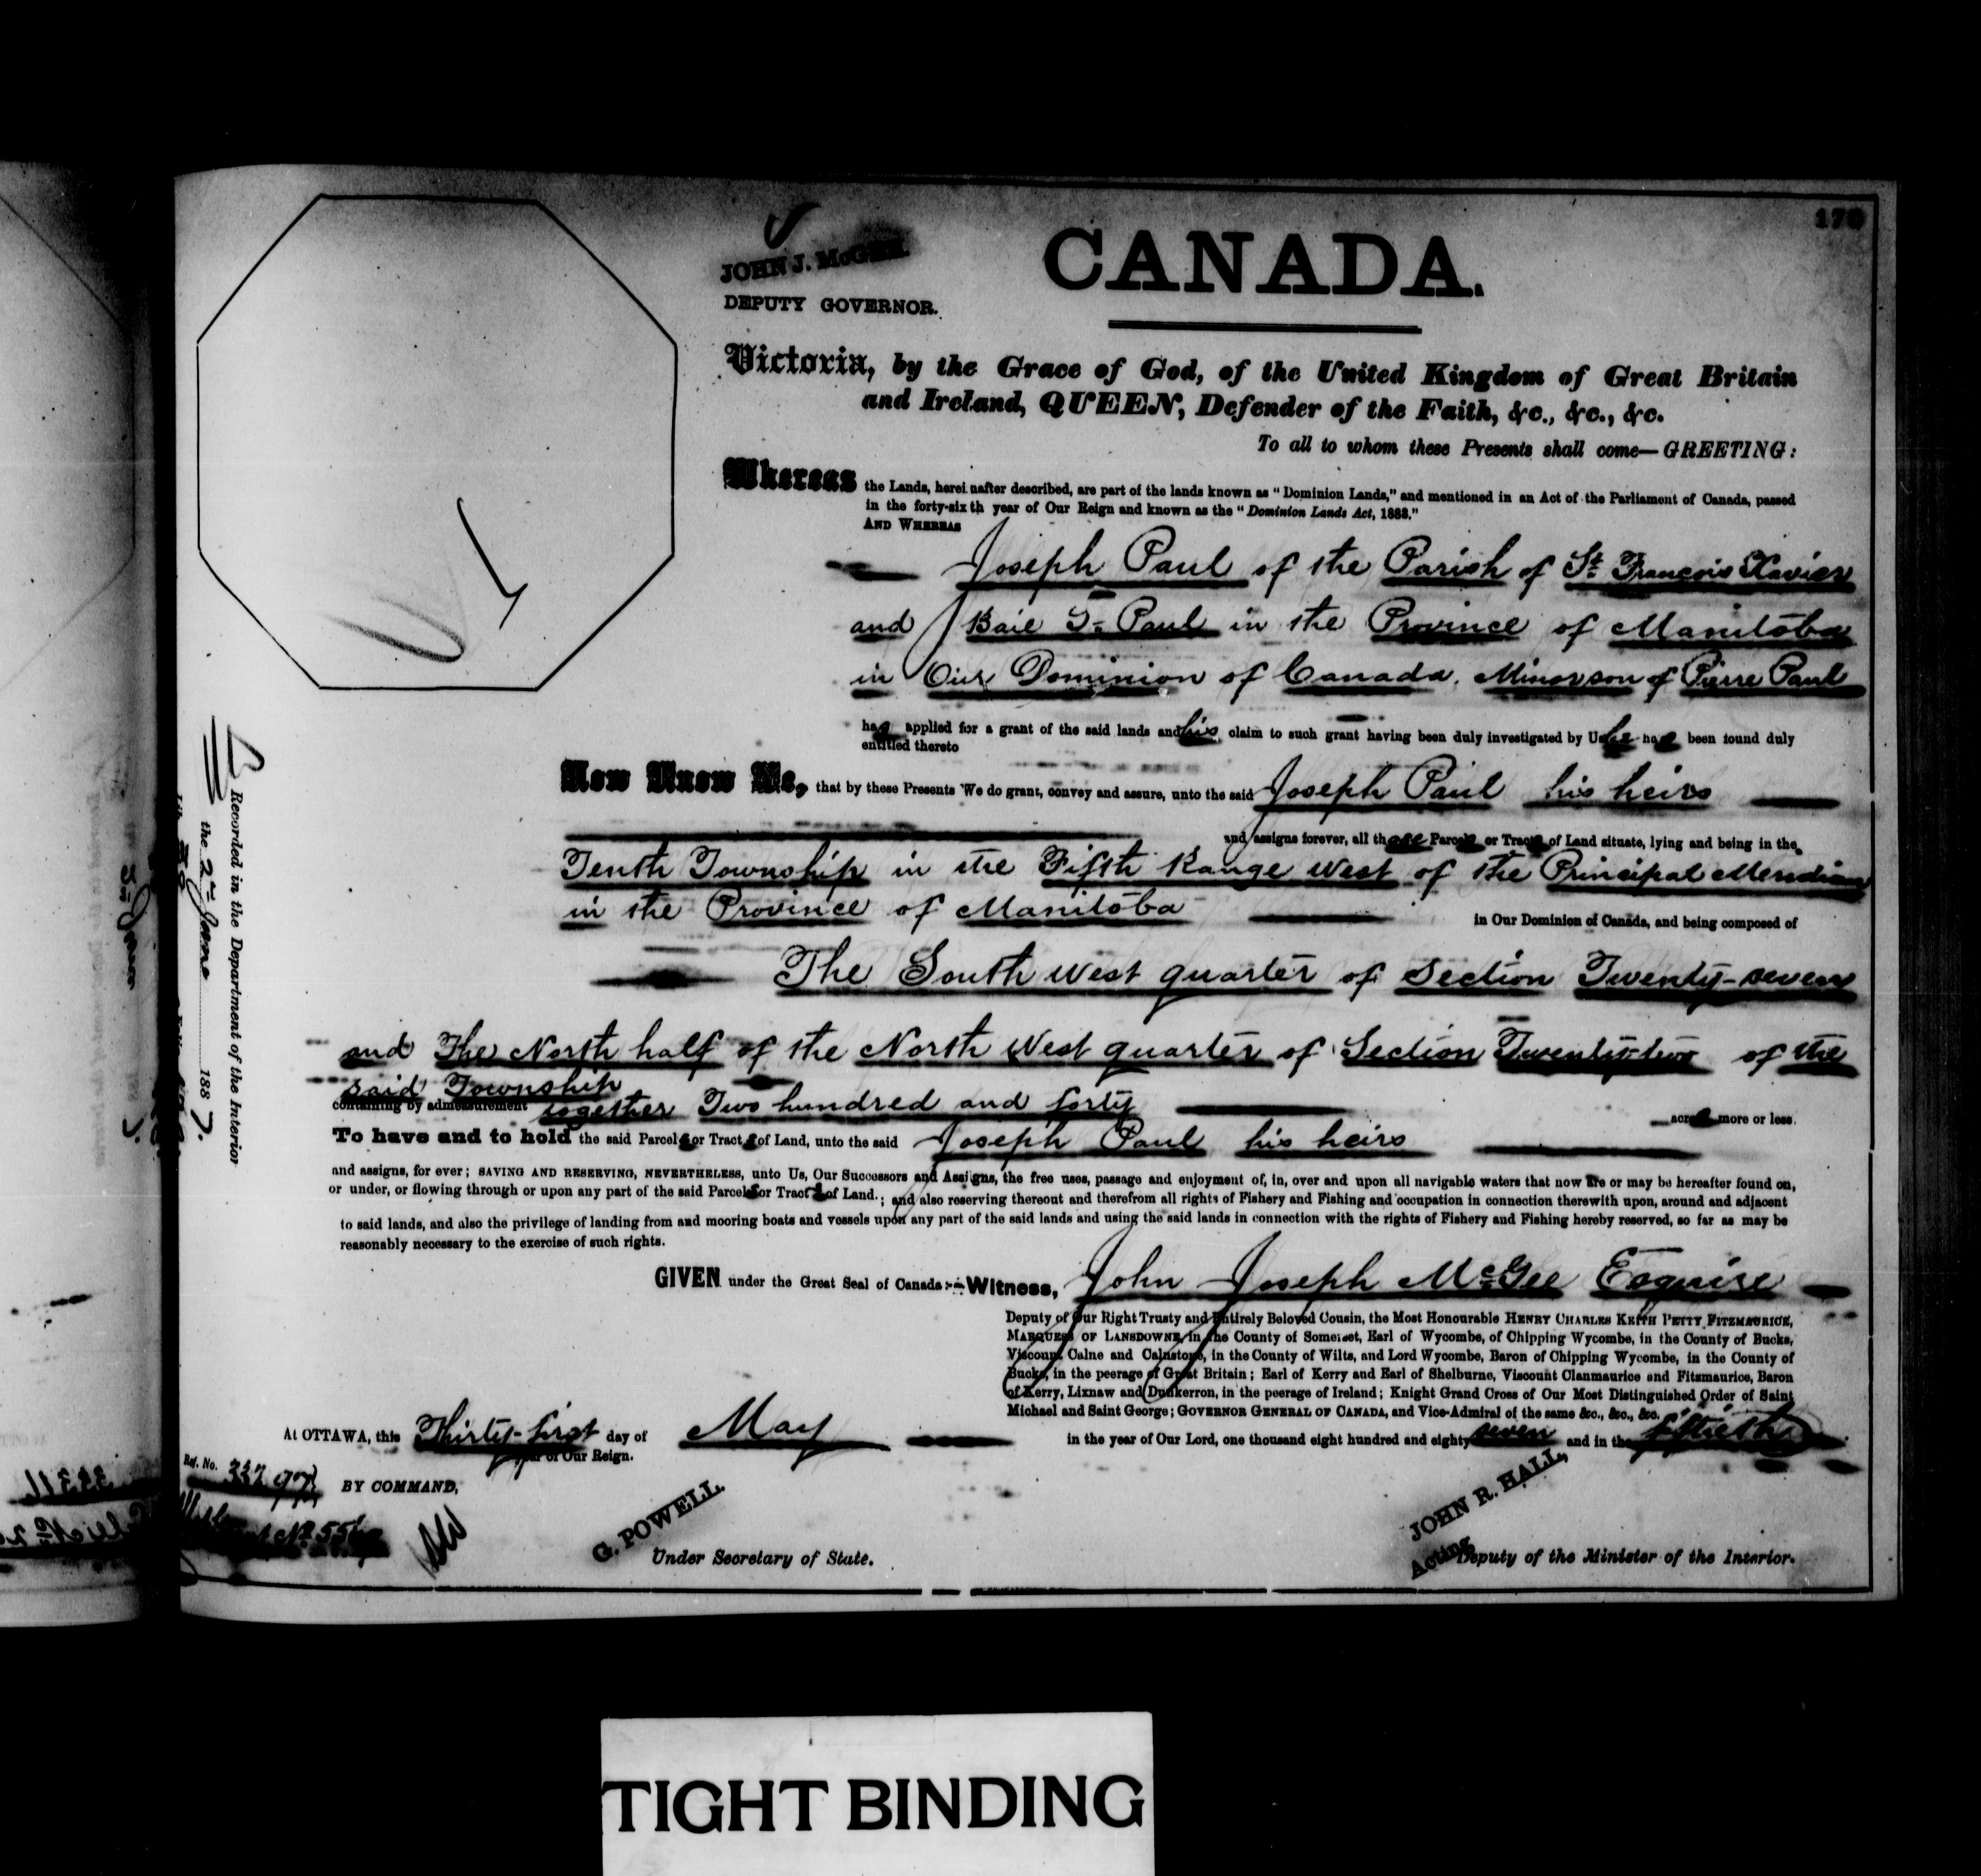 170
JOHN J. McGEE.
DEPUTY GOVERNOR.
CANADA.
Victoria, by the Grace of God, of the United Kingdom of Great Britain
and Ireland, QUEEN, Defender of the Faith, &c., &c., &c.
To all to whom these Presents shall come—GREETING:
Whereas the Lands, hereinafter described, are part of the lands known as "Dominion Lands," and mentioned in an Act of the Parliament of Canada, passed
in the forty-sixth year of Our Reign and known as the "Dominion Lands Act, 1883."
AND WHEREAS
Joseph Paul of the Parish of St. François Xavier
and Baie St. Paul in the Province of Manitoba
in Our Dominion of Canada, Minor son of Pierre Paul
has applied for a grant of the said lands and his claim to such grant having been duly investigated by Us he has been found duly
entitled thereto
Now Know Ye, that by these Presents We do grant, convey and assure, unto the said Joseph Paul his heirs
and assigns forever, all those Parcels or Tracts of Land situate, lying and being in the
Tenth Township in the Fifth Range West of the Principal Meridian
in the Province of Manitoba in Our Dominion of Canada, and being composed of
The South West quarter of Section Twenty-seven
and The North half of the North West quarter of Section Twenty-two of the
said Township
containing by admeasurement together Two hundred and forty acres more or less.
To have and to hold the said Parcels or Tracts of Land, unto the said Joseph Paul his heirs
and assigns, for ever; SAVING AND RESERVING, NEVERTHELESS, unto Us, Our Successors and Assigns, the free uses, passage and enjoyment of, in, over and upon all navigable waters that now are or may be hereafter found on,
or under, or flowing through or upon any part of the said Parcels or Tracts of Land.; and also reserving thereout and therefrom all rights of Fishery and Fishing and occupation in connection therewith upon, around and adjacent
to said lands, and also the privilege of landing from and mooring boats and vessels upon any part of the said lands and using the said lands in connection with the rights of Fishery and Fishing hereby reserved, so far as may be
reasonably necessary to the exercise of such rights.
GIVEN under the Great Seal of Canada:—Witness, John Joseph McGee Esquire
Deputy of Our Right Trusty and Entirely Beloved Cousin, the Most Honourable HENRY CHARLES KEITH PETTY FITZMAURICE,
MARQUESS OF LANSDOWNE, in the County of Somerset, Earl of Wycombe, of Chipping Wycombe, in the County of Bucks,
Viscount Calne and Calnstone, in the County of Wilts, and Lord Wycombe, Baron of Chipping Wycombe, in the County of
Bucks, in the peerage of Great Britain; Earl of Kerry and Earl of Shelburne, Viscount Clanmaurice and Fitzmaurice, Baron
of Kerry, Lixnaw and Dunkerron, in the peerage of Ireland; Knight Grand Cross of Our Most Distinguished Order of Saint
Michael and Saint George; GOVERNOR GENERAL OF CANADA, and Vice-Admiral of the same &c., &c., &c.
At OTTAWA, this Thirty-first day of May in the year of Our Lord, one thousand eight hundred and eighty seven and in the fiftieth
year of Our Reign.
Ref. No.
BY COMMAND,
G. POWELL.
Under Secretary of State.
JOHN R. HALL,
Acting
Deputy of the Minister of the Interior.
Recorded in the Department of the Interior
the 2nd June 1887.
TIGHT BINDING